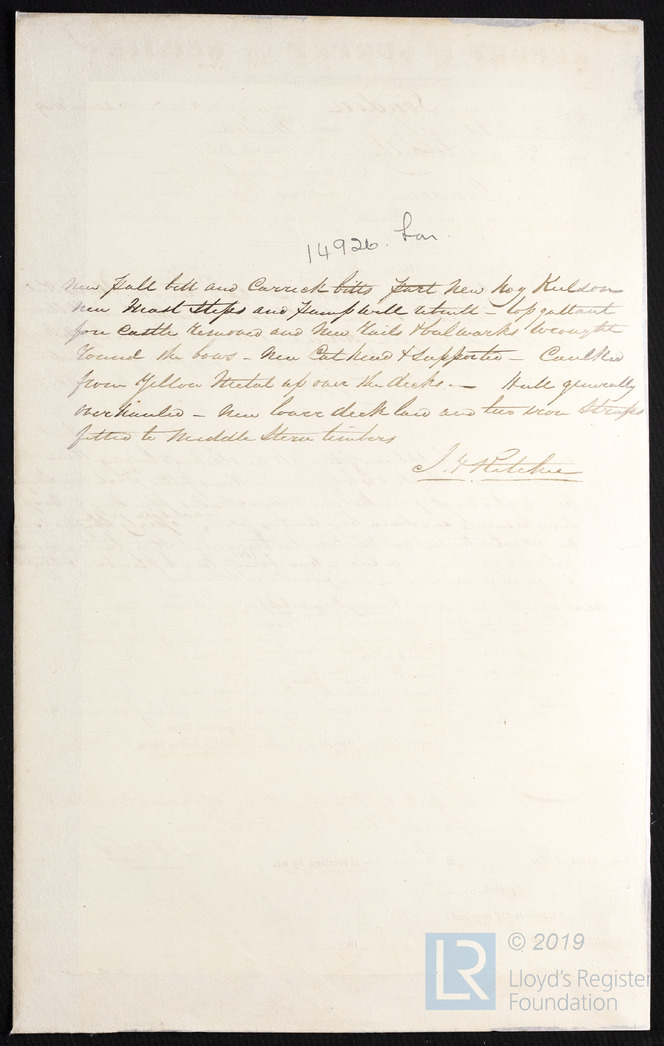 14926. Lon.
New Pall bitt and Carrick bitts part New hog Kelson
New Mast Steps and Pump Well rebuilt - top gallant
fore Castle removed and New rails & bulwarks wrought
round the bows - New Cat head & supporter - Caulked
from Yellow Metal up over the decks. - Hull generally
overhauled - New lower deck laid and two iron Straps
fitted to Middle Stern timbers
J. Ritchie
© 2019
LR
Lloyd's Register
Foundation